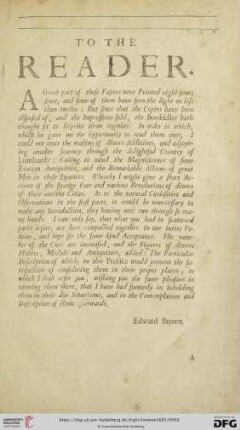 TO THE
READER.
A Great part of these Papers were Printed eight years
since, and some of them have seen the light no less
than twelve: But since that the Copies have been
disposed of, and the Impressions sold, the Bookseller hath
thought fit to Reprint them together. In order to which,
whilst he gave me the Opportunity to read them over, I
could not omit the making of divers Additions, and
another Journey through the delightful Country of
Lombardy: Calling to mind the Magnificence of some
Roman Antiquities, and the Remarkable Actions of great
Men in those Quarters. Whereby I might give a short
of the strange Fate and various Revolutions of divers
of their ancient Cities. As to the natural Conditions and
Observations in the first parts, it would be unnecessary to
make any
hands. I can only say, that what you had in scattered
parts before, are here compelled together in one intire
and hope for the same kind Acceptance. The
of the Cuts are increased, and the Figures of divers
Habits, Medals and Antiquities, added: The Particular
Description of which, in this Preface would prevent the
of considering them in their proper places; to
which I shall refer you, wishing you the same pleasure in
viewing them there, that I have had formerly in beholding
them in their due Situations, and in the Contemplation and
Description of them afterwards.
Edward Brown.
A